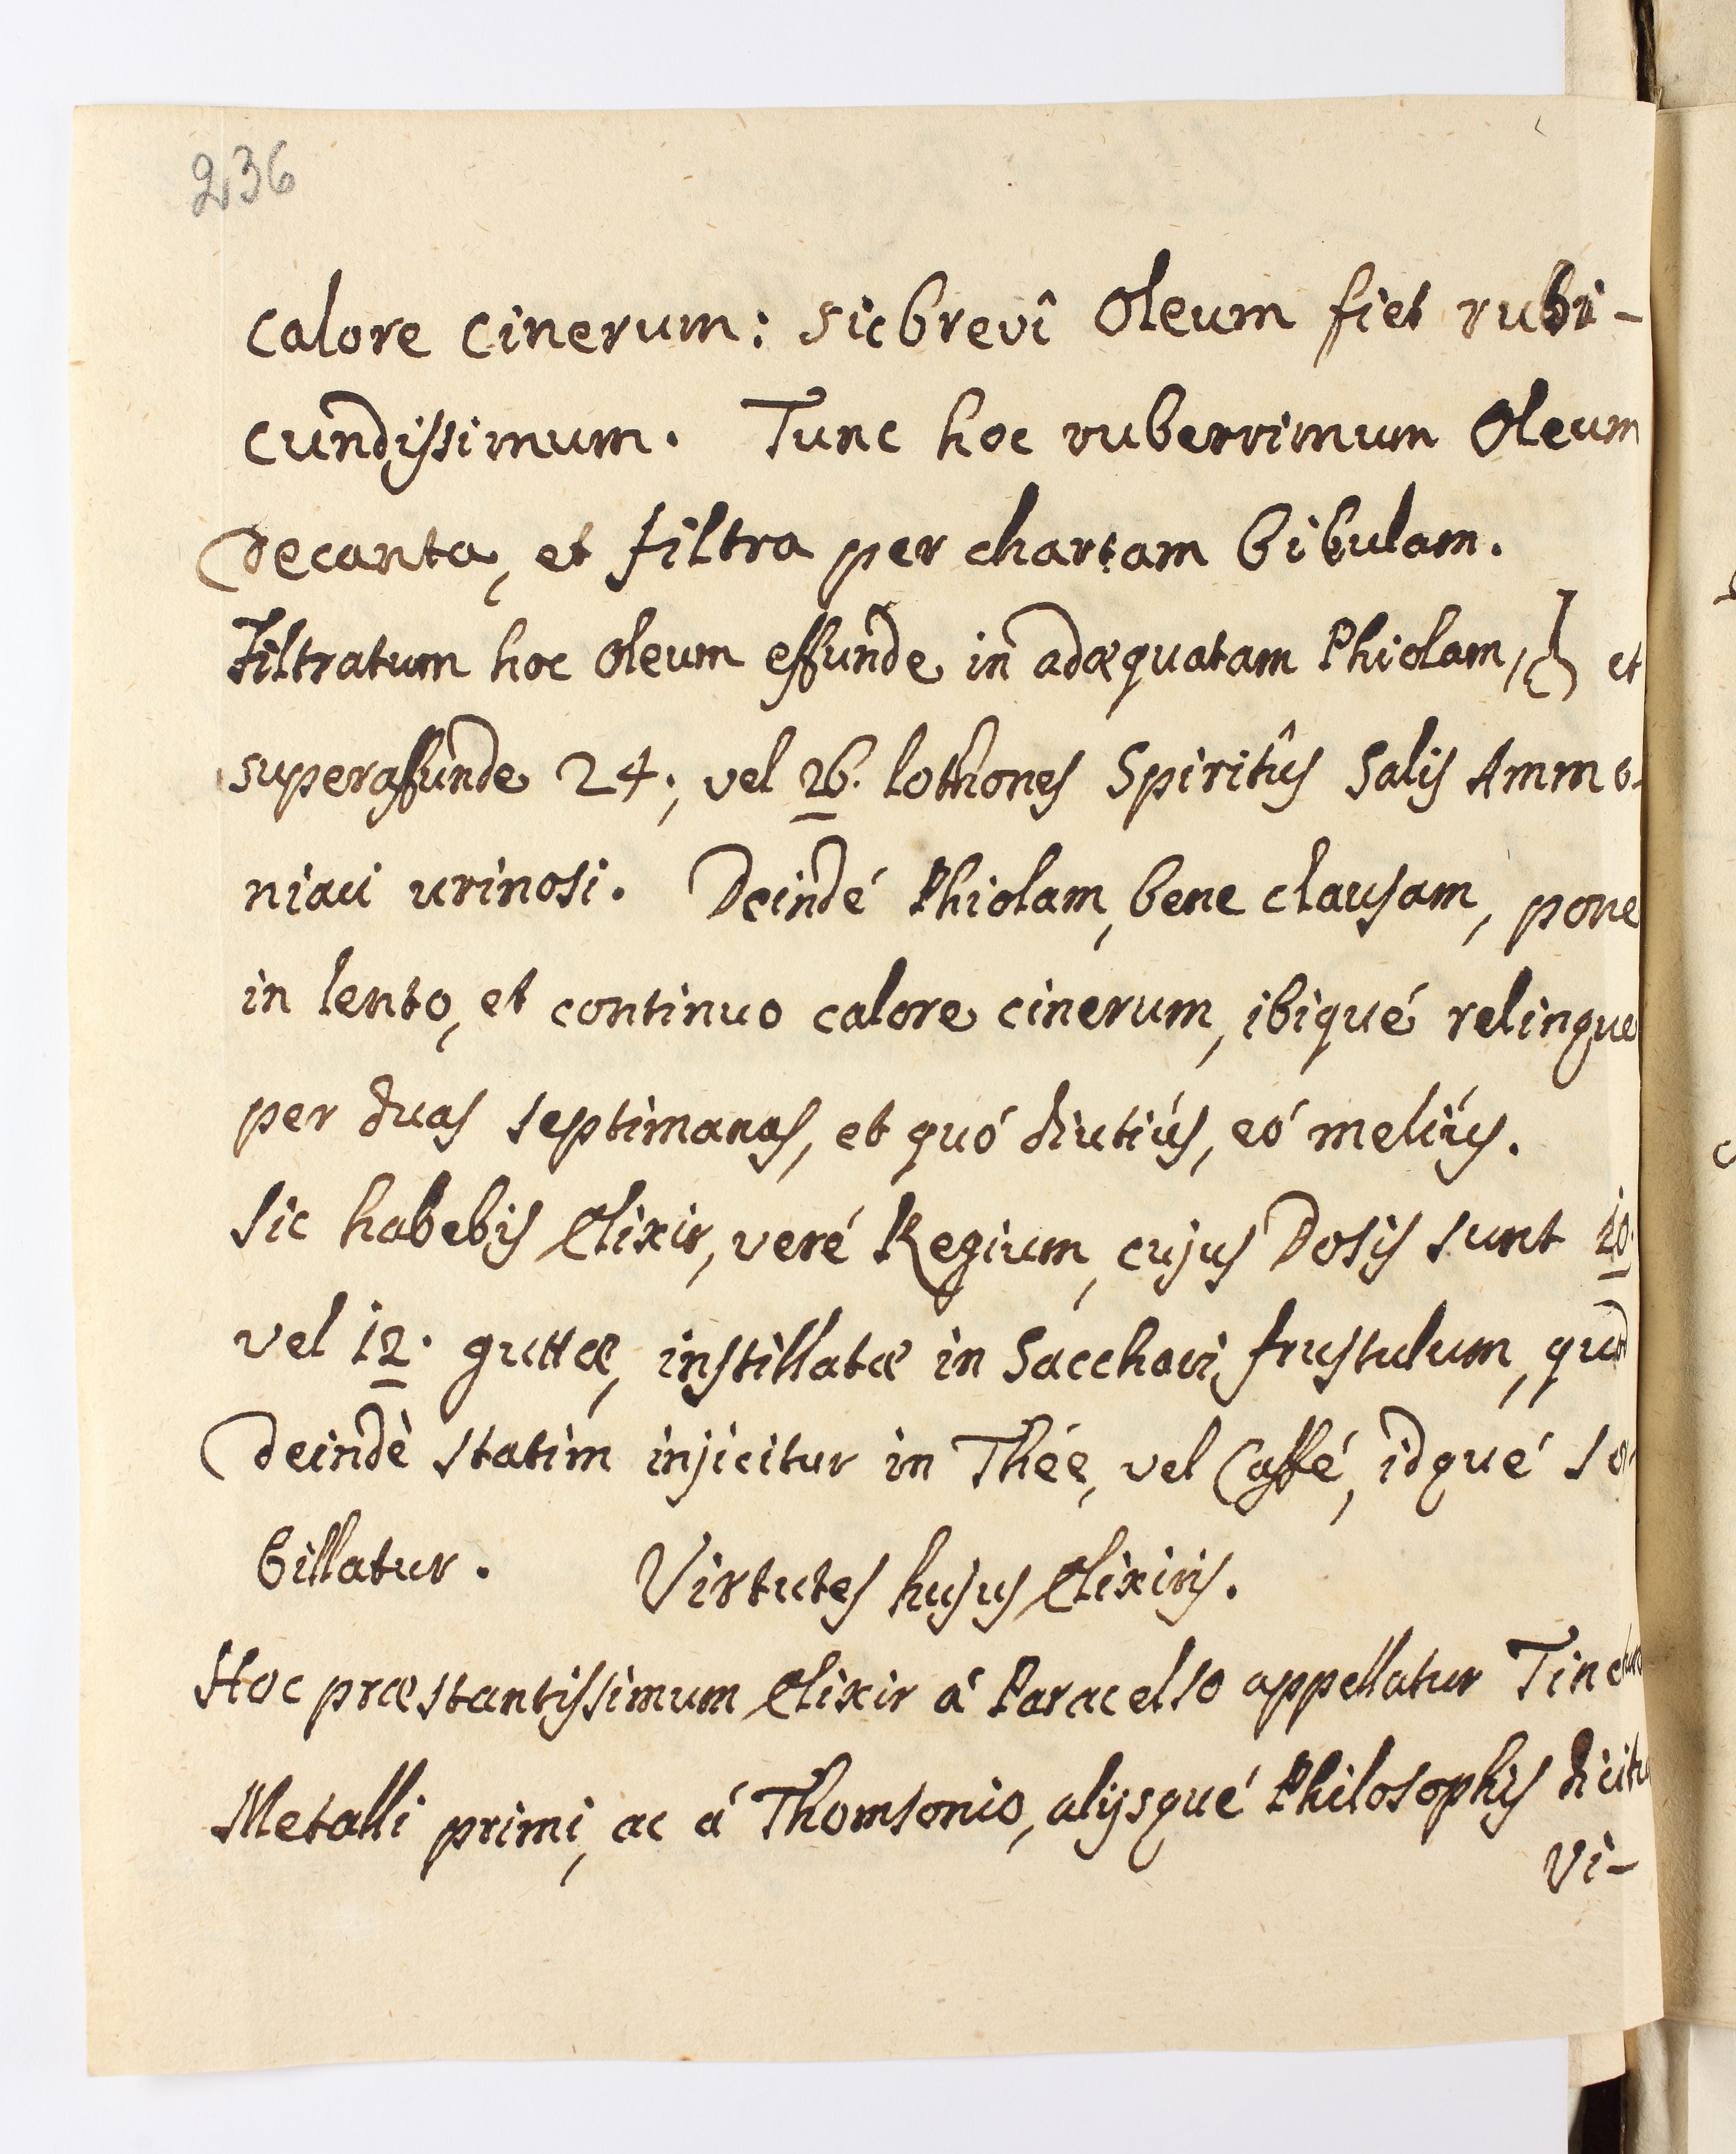 236
calore cinerum: sic brevî Oleum fiet rubi-
cundissimum. Tunc hoc ruberrimum Oleum
decanta, et filtra per chartam bibulam.
Filtratum hoc Oleum effunde in adæquatam Phiolam, et
superaffunde 24., vel 26. lothones Spiritûs Salis Ammo-
niaci urinosi. Deindé Phiolam, bene clausam, pone
in lento, et continuo calore cinerum, ibiqué relinque
per duas septimanas, et quó diutiús, eó meliús.
Sic habebis Elixir, veré Regium, cujus Dosis sunt 10.
vel 12. guttæ, instillatæ in Sacchari frustulum, quod
deindè statim injicitur in Thée, vel Caffé, idqué sor-
billatur. Virtutes hujus Elixiris.
Hoc præstantissimum Elixir á Paracelso appellatur Tinctura
Metalli primi, ac á Thomsonio, alijsqué Philosophis dicitur
Vi-